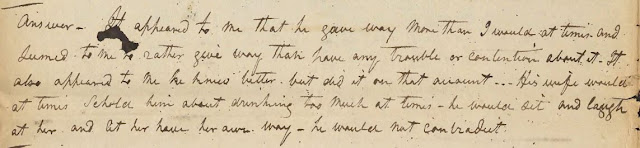 Answer – It appeared to me that he gave way more than I would at times and
seemed to me to rather give way than have any trouble or contention about it. It
also appeared to me he knew better. but did it on that account... His wife would
at times Schold him about drinking too much at times – he would set and laugh
at her and let her have her own way – he would not contradict.